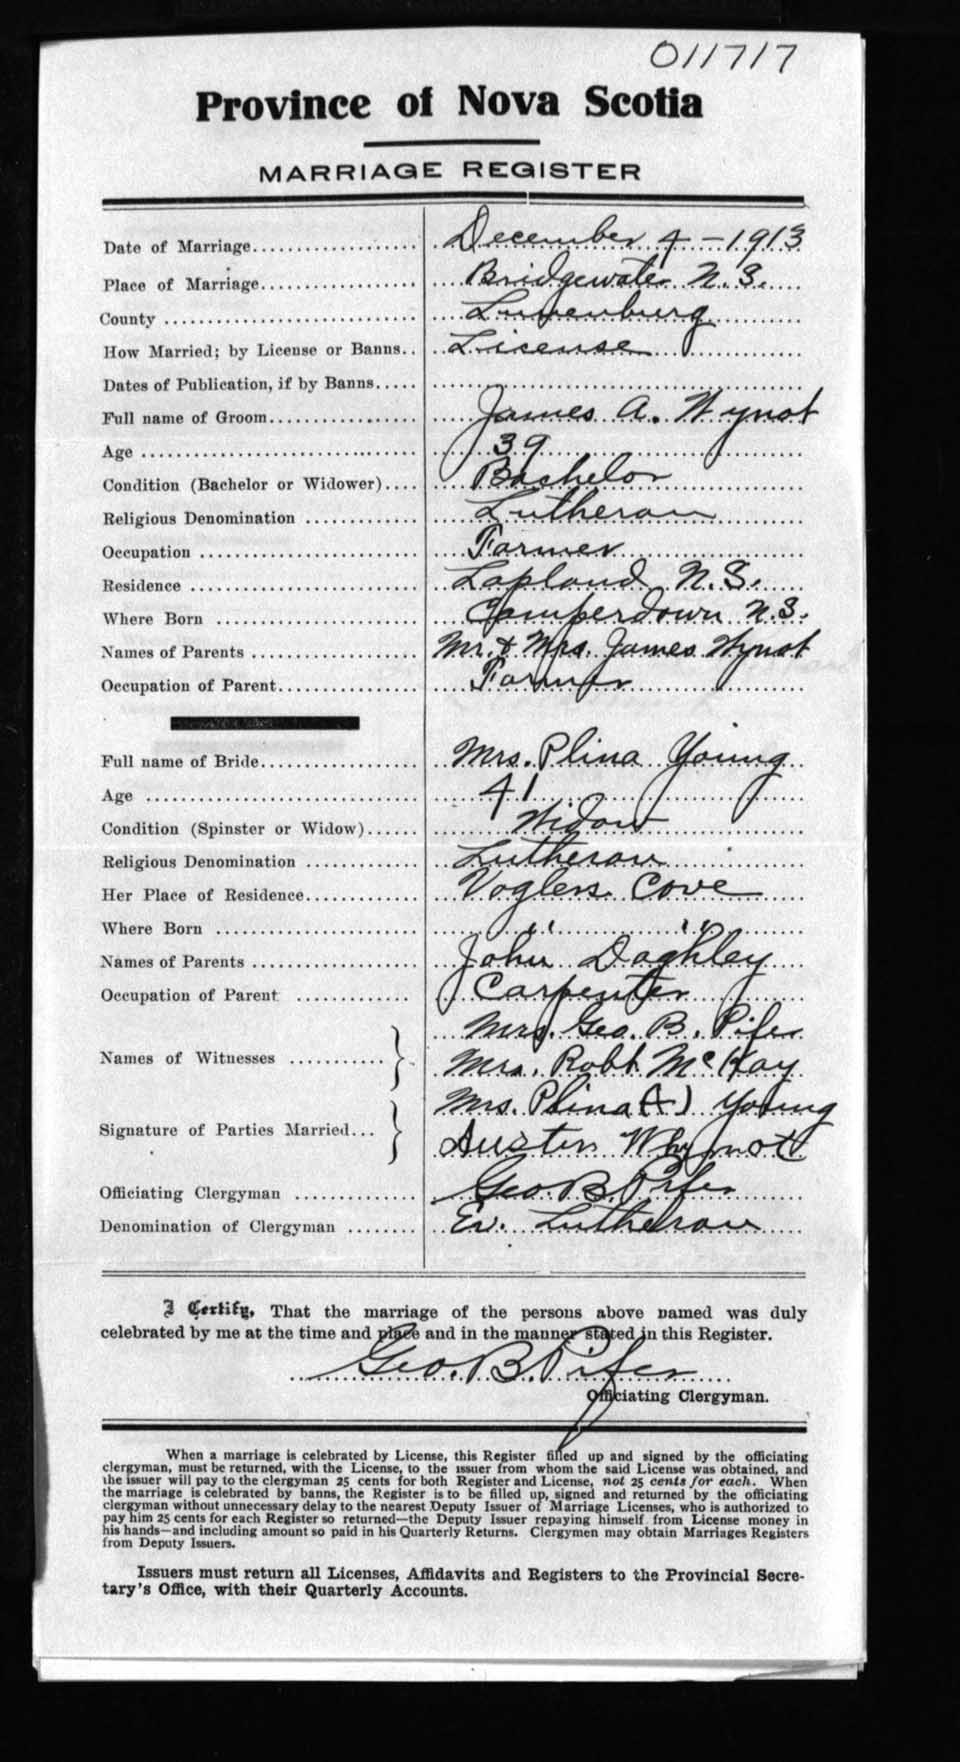 011717
Province of Nova Scotia
MARRIAGE REGISTER
Date of Marriage.................... December 4 - 1913
Place of Marriage................... Bridgewater N.S.
County .............................. Lunenburg
How Married; by License or Banns.. License
Dates of Publication, if by Banns.....
Full name of Groom.................. James A. Wynot
Age ................................. 39
Condition (Bachelor or Widower).... Bachelor
Religious Denomination ............. Lutheran
Occupation .......................... Farmer
Residence ........................... Lapland N.S.
Where Born ......................... Camperdown N.S.
Names of Parents .................... Mr. & Mrs. James Wynot
Occupation of Parent................. Farmer
Full name of Bride................... Mrs. Plina Young
Age ................................. 41
Condition (Spinster or Widow)...... Widow
Religious Denomination ............. Lutheran
Her Place of Residence............. Voglers Cove
Where Born ......................... " "
Names of Parents .................... John Daghley
Occupation of Parent .............. Carpenter
Mrs. Geo. B. Pifer
Names of Witnesses ............ } Mrs. Robt. McKay
Mrs. Plina (A) Young
Signature of Parties Married... } Austin Whynot
Officiating Clergyman .............. Geo B. Pifer
Denomination of Clergyman ........ Ev. Lutheran
I Certify, That the marriage of the persons above named was duly
celebrated by me at the time and place and in the manner stated in this Register.
Geo. B. Pifer
Officiating Clergyman.
When a marriage is celebrated by License, this Register filled up and signed by the officiating
clergyman, must be returned, with the License, to the issuer from whom the said License was obtained, and
the issuer will pay to the clergyman 25 cents for both Register and License, not 25 cents for each. When
the marriage is celebrated by banns, the Register is to be filled up, signed and returned by the officiating
clergyman without unnecessary delay to the nearest Deputy Issuer of Marriage Licenses, who is authorized to
pay him 25 cents for each Register so returned—the Deputy Issuer repaying himself from License money in
his hands—and including amount so paid in his Quarterly Returns. Clergymen may obtain Marriages Registers
from Deputy Issuers.
Issuers must return all Licenses, Affidavits and Registers to the Provincial Secre-
tary's Office, with their Quarterly Accounts.